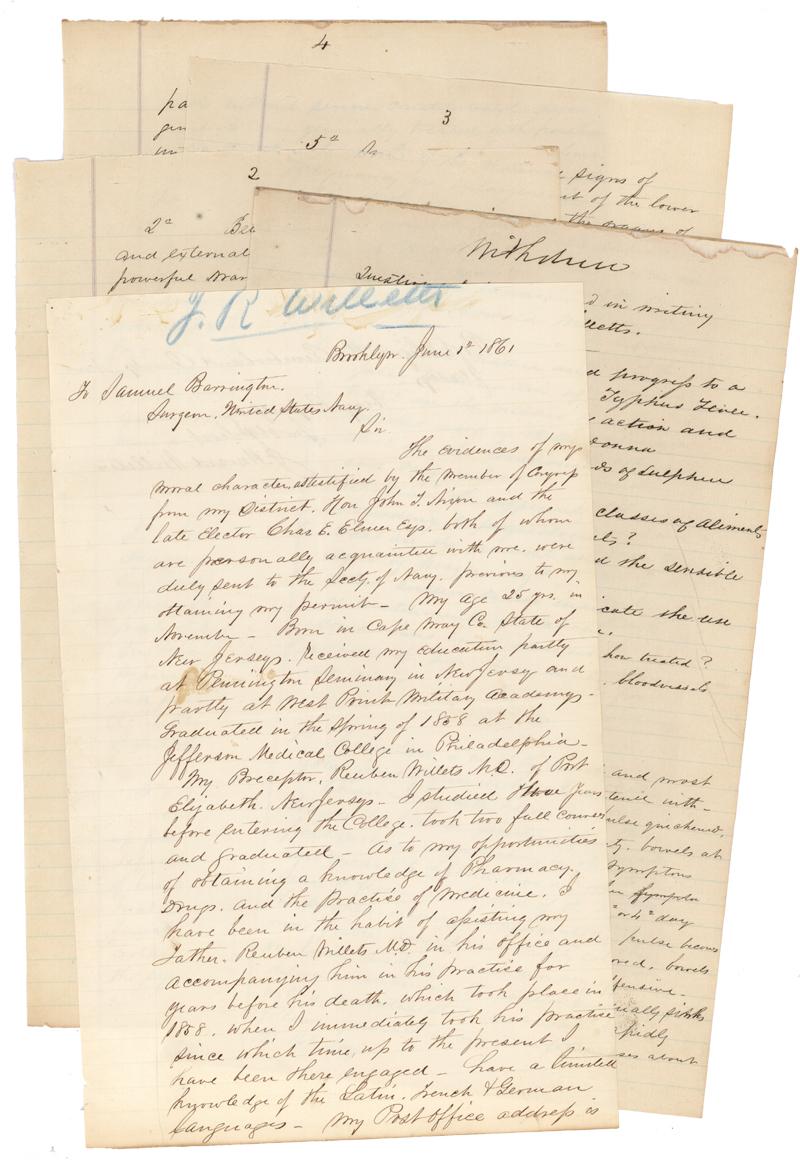 4
pa
gen
3
signs of
of the lower
the organs of
5th
2
2d Bel
and external
powerful Nar
Withdrew
Question
d in writing
lletts.
d progress to a
Typhus Fever.
action and
donna
ds of Sulphur
classes of Aliments
?
d the sensible
icate the use
how treated?
bloodvessels
and most
tence with-
ulse quickened,
ty. bowels at
symptoms
or 4th day
pulse becomes
ored, bowels
ffensive-
ually sinks
apidly
ses about
J. R Willetts
Brooklyn. June 1st 1861
To Samuel Barrington.
Surgeon, United States Navy.
Sir
The evidences of my
moral character, as testified by the member of Congress
from my District. Hon John T. Nixon and the
late Elector Chas E. Elmer Esqs. both of whom
are personally acquainted with me. were
duly sent to the Secty. of Navy. previous to my
obtaining my permit- My age 25 yrs. in
November- Born in Cape May Co. State of
New Jersey. received my education partly
at Pennington Seminary in New Jersey and
partly at West Point Military Academy-
Graduated in the Spring of 1858 at the
Jefferson Medical College in Philadelphia-
My Preceptor, Reuben Willets M.D. of Port
Elizabeth. New Jersey- I studied three years
before entering the College. took two full courses
and graduated- As to my opportunities
of obtaining a knowledge of Pharmacy.
Drugs. and the Practise of Medicine. I
have been in the habit of assisting my
Father. Reuben Willets M.D. in his office and
accompanying him in his Practise for
years before his death. which took place in
1858. when I immediately took his practise
since which time, up to the present I
have been there engaged- have a limited
knowledge of the Latin. French & German
Languages- My Post Office address is